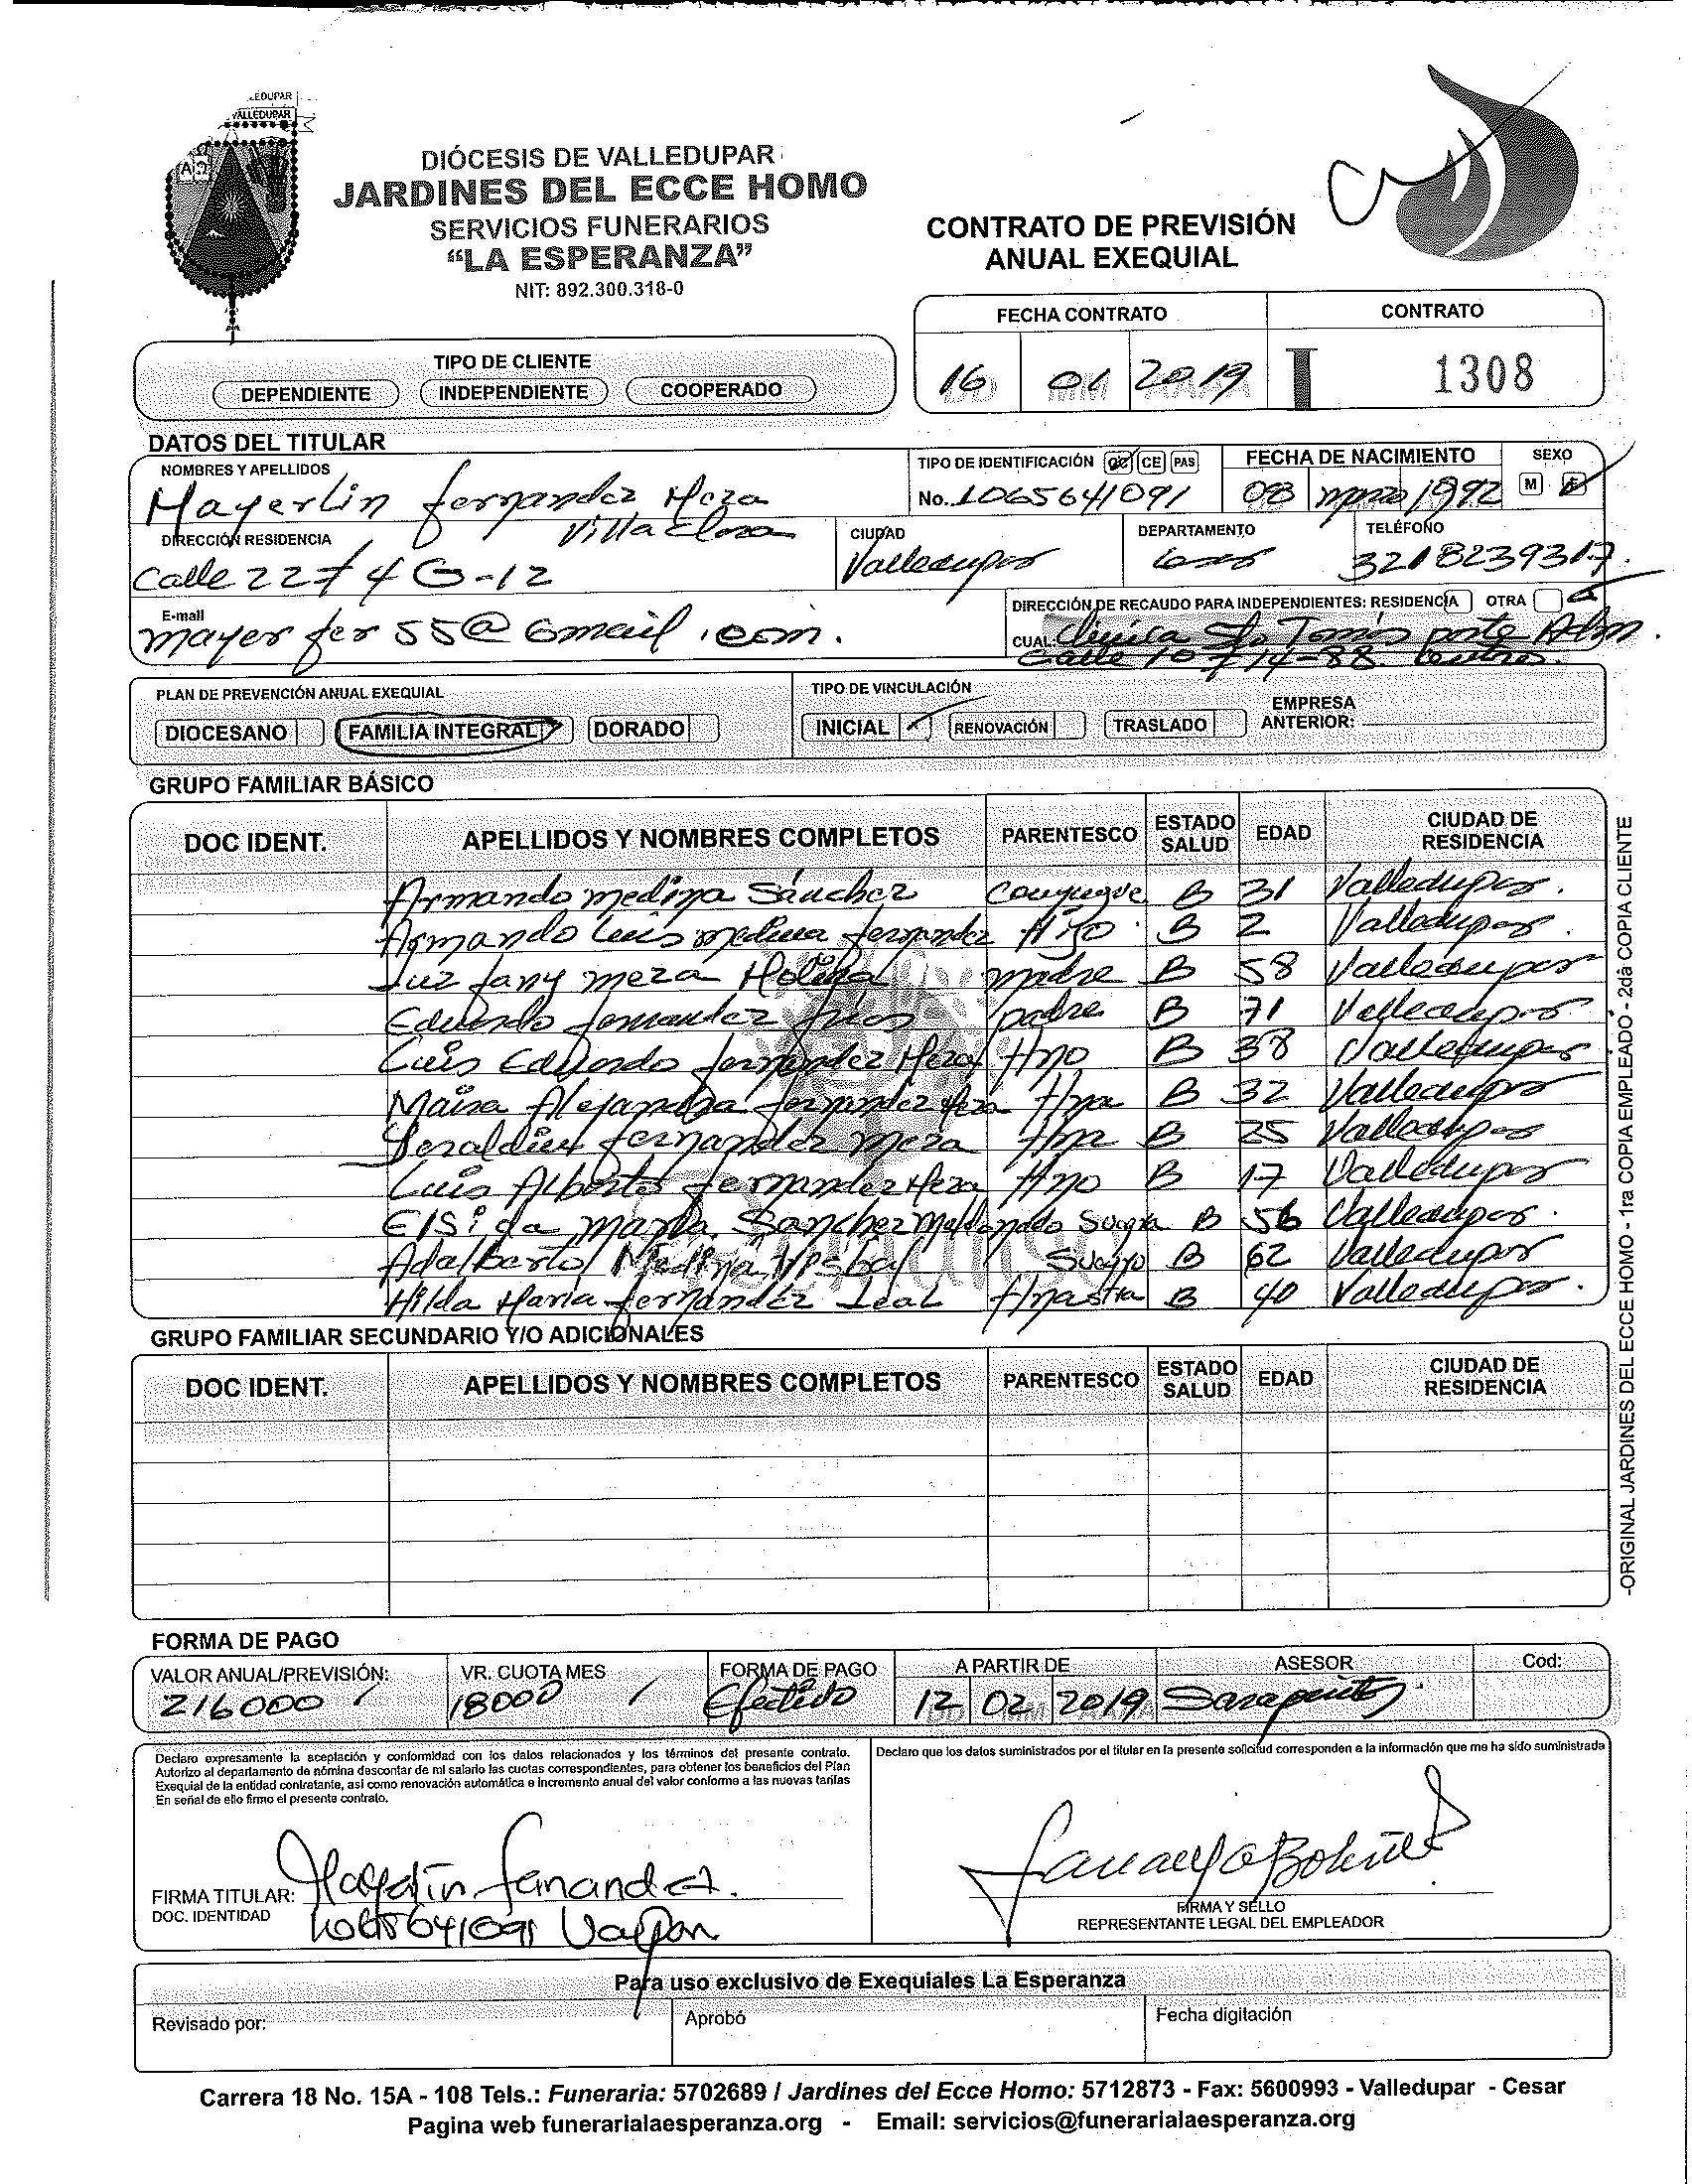 LEDUPAR
VALLEDUPAR
A Ω
DIÓCESIS DE VALLEDUPAR
JARDINES DEL ECCE HOMO
SERVICIOS FUNERARIOS
“LA ESPERANZA”
NIT: 892.300.318-0
CONTRATO DE PREVISIÓN
ANUAL EXEQUIAL
FECHA CONTRATO CONTRATO
16 01 2019 I 1308
TIPO DE CLIENTE
DEPENDIENTE INDEPENDIENTE COOPERADO
DATOS DEL TITULAR
NOMBRES Y APELLIDOS TIPO DE IDENTIFICACIÓN CC CE PAS FECHA DE NACIMIENTO SEXO
Mayerlin fernandez Meza No. 1065641091 08 marzo 1992 M F
DIRECCIÓN RESIDENCIA Villa Clara CIUDAD DEPARTAMENTO TELÉFONO
Calle 22 # 4 G-12 Valledupar Cesar 3218239317
E-mail DIRECCIÓN DE RECAUDO PARA INDEPENDIENTES: RESIDENCIA OTRA
mayer fer 55@Gmail.com. CUAL: Clinica Sto Tomás parte Adm.
Calle 10 # 14-88 Centro.
PLAN DE PREVENCIÓN ANUAL EXEQUIAL TIPO DE VINCULACIÓN EMPRESA
DIOCESANO FAMILIA INTEGRAL DORADO INICIAL RENOVACIÓN TRASLADO ANTERIOR:
GRUPO FAMILIAR BÁSICO
DOC IDENT. APELLIDOS Y NOMBRES COMPLETOS PARENTESCO ESTADO SALUD EDAD CIUDAD DE RESIDENCIA
Armando medina Sánchez Conyugue B 31 Valledupar.
Armando Luis medina fernandez Hijo B 2 Valledupar.
Luz fany meza Molina madre B 58 Valledupar
Eduardo fernandez frias padre B 71 Valledupar
Luis Eduardo fernandez Meza Hno B 38 Valledupar
Maira Alejandra fernandez Meza Hna B 32 Valledupar
Yeraldin fernandez meza Hna B 25 Valledupar
Luis Alberto fernandez Meza Hno B 17 Valledupar
Elsida Maria Sanchez Maldonado Suegra B 56 Valledupar.
Adalberto Medina Suegro B 62 Valledupar
Hilda Maria fernandez Leal Hnastra B 40 Valledupar.
GRUPO FAMILIAR SECUNDARIO Y/O ADICIONALES
DOC IDENT. APELLIDOS Y NOMBRES COMPLETOS PARENTESCO ESTADO SALUD EDAD CIUDAD DE RESIDENCIA
-ORIGINAL JARDINES DEL ECCE HOMO - 1ra COPIA EMPLEADO - 2da COPIA CLIENTE
FORMA DE PAGO
VALOR ANUAL/PREVISIÓN: VR. CUOTA MES FORMA DE PAGO A PARTIR DE ASESOR Cod:
216000 18000 Efectivo 12 02 2019
Declaro expresamente la aceptación y conformidad con los datos relacionados y los términos del presente contrato.
Autorizo al departamento de nómina descontar de mi salario las cuotas correspondientes, para obtener los beneficios del Plan
Exequial de la entidad contratante, así como renovación automática e incremento anual del valor conforme a las nuevas tarifas
En señal de ello firmo el presente contrato.
Declaro que los datos suministrados por el titular en la presente solicitud corresponden a la información que me ha sido suministrada
FIRMA TITULAR: Mayerlin fernandez.
DOC. IDENTIDAD 1065641091 Vallpar
FIRMA Y SELLO
REPRESENTANTE LEGAL DEL EMPLEADOR
Para uso exclusivo de Exequiales La Esperanza
Revisado por: Aprobó Fecha digitación
Carrera 18 No. 15A - 108 Tels.: Funeraria: 5702689 / Jardines del Ecce Homo: 5712873 - Fax: 5600993 - Valledupar - Cesar
Pagina web funerarialaesperanza.org - Email: servicios@funerarialaesperanza.org